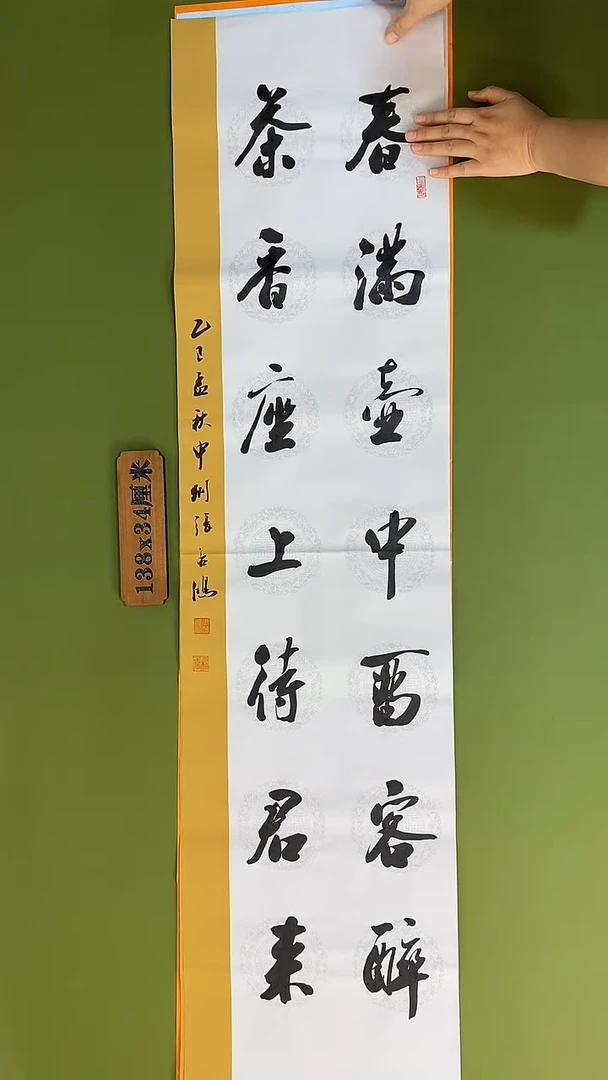 春满壶中留客醉
茶香座上待君来
乙巳孟秋中州张鸿
138x34厘米